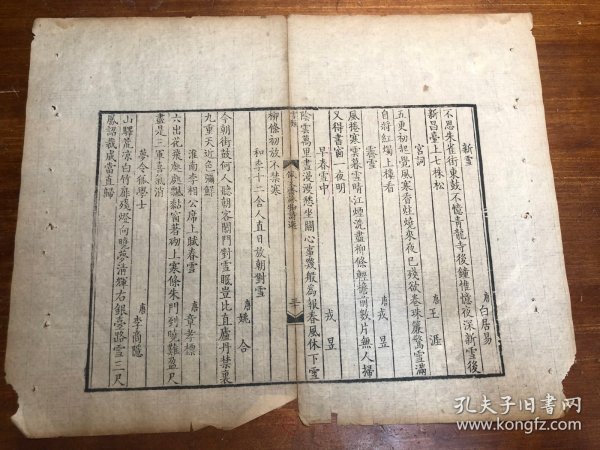 新雪
唐 白居易
不思朱雀街東鼓不憶青龍寺後鐘惟憶夜深新雪後
新昌臺上七株松
宮詞
唐 王涯
五更初起覺風寒香炷燒來夜已殘欲卷珠簾驚雪滿
自將紅燭上樓看
霽雪
戎昱
風捲寒雲暮雪晴江煙洗盡柳條輕簷前數片無人掃
又得書窗一夜明
早春雪中
戎昱
陰雲萬里晝漫漫愁坐關心事幾般為報春風休下雪
柳條初放不禁寒
和李十二舍人直日放朝對雪
唐 姚合
今朝街鼓何人聽朝客開門對雪眠豈比直廬丹禁裏
九重天近色彌鮮
淮南李相公席上賦春雪
唐 章孝標
六出花飛處處飄黏窗著砌上寒條朱門到曉難盈尺
盡是三軍喜氣消
夢令狐學士
唐 李商隱
山驛荒涼白竹扉殘燈向曉夢清暉右銀臺路雪三尺
鳳詔裁成當直歸
孔夫子旧书网
www.kongfz.com